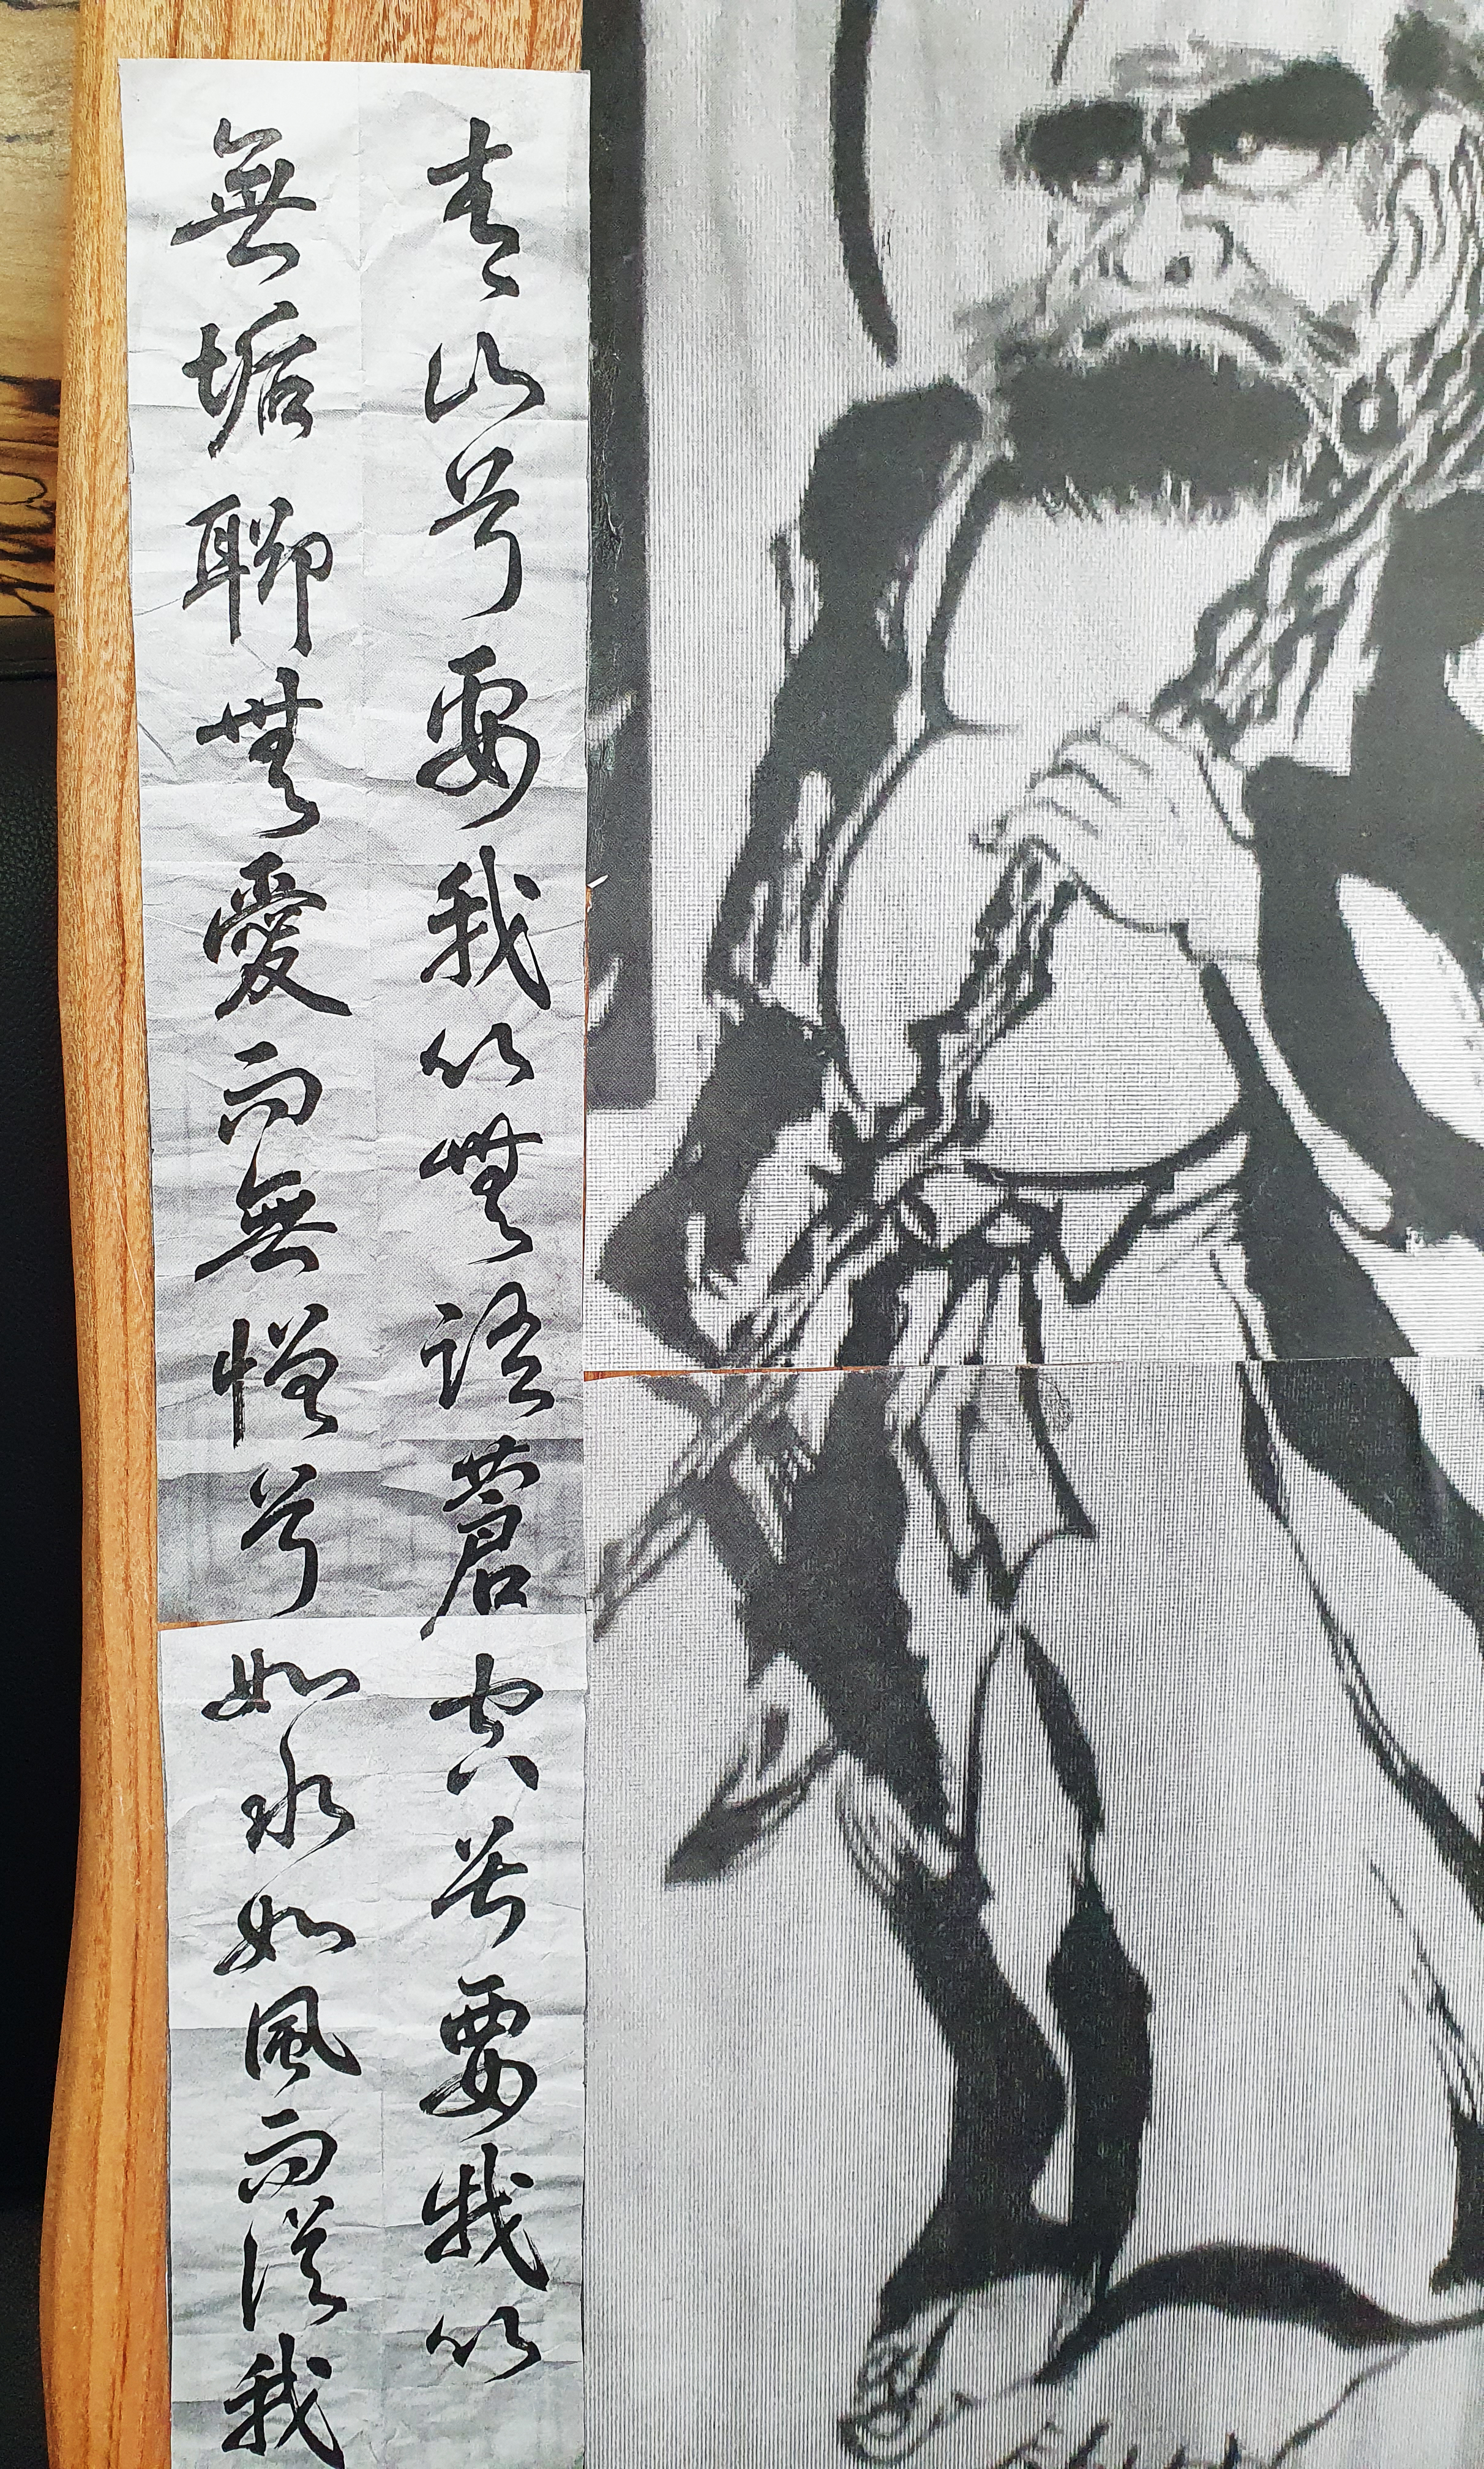 青山兮要我以無語蒼空兮要我以
無垢聊無愛而無憎兮如水如風而從我